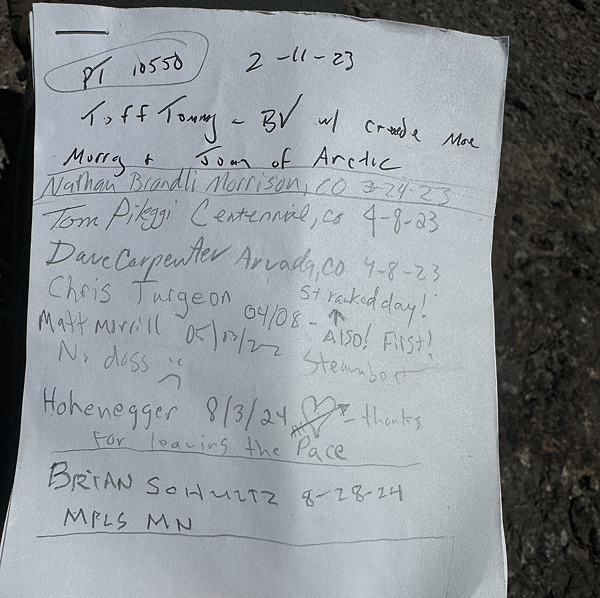 PT 10550 2-11-23
Tommy - BV w/
Murray + Joan of Arctic
Nathan Brandli Morrison, CO 3-24-23
Tom Pileggi Centennial, co 4-8-23
Dave Carpenter Arvada, CO 4-8-23
Chris Turgeon St ranked day!
04/08 - ↑ ALSO! First!
Matt Morrill 05/13/22
No doss :(
Hohenegger 8/3/24 ♡ - thanks
for leaving the Pace
BRIAN SCHULTZ 8-28-24
MPLS MN